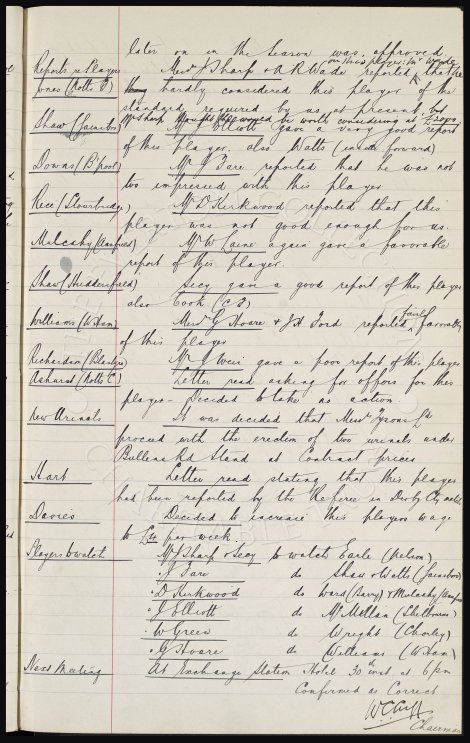 later on in the season was approved.
on this player. Mr Wade
Reports re Players Messrs J Sharp & A R Wade reported that he
Jones (Notts F) hardly considered this player of the
standard required by us at present, but
Mr Sharp thought he would be worth considering at £2000
Shaw (Gainsboro) Mr J Elliott gave a very good report
of this player. also Watts (inside forward)
Downs (B'pool) Mr J Fare reported that he was not
too impressed with this player
Rece (Stourbridge) Mr D Kirkwood reported that this
player was not good enough for us.
Mulcahy Mr W Caine again gave a favorable
report of this player.
Shaw (Huddersfield) Secy gave a good report of this player
also Cook (C.F.)
fairly
Williams (W. Ham) Messrs G Hoare & J H Ford reported favorably
of this player
Richardson Mr J Weir gave a poor report of this player
Ashurst (Notts C) Letter read asking for offers for this
player - Decided to take no action.
New Urinals It was decided that Messrs Tysons Ltd
proceed with the erection of two urinals under
Bullens Rd Stand at Contract prices
Hart Letter read stating that this player
had been reported by the Referee in Derby Cty match
Davies Decided to increase this players wage
to per week.
Players to watch Mr J Sharp & Secy to watch Earle (Nelson)
" J Fare do Shaw & Watts (Gainsboro)
" D Kirkwood do Ward (Barry) & Mulcahy
" J Elliott do McMillan (Shelbourne)
" W Green do Wright (Chorley)
" G Hoare do Williams (W. Ham)
Next Meeting At Exchange Station Hotel 30th inst at 6pm
Confirmed as Correct
W.C. Cuff
Chairman